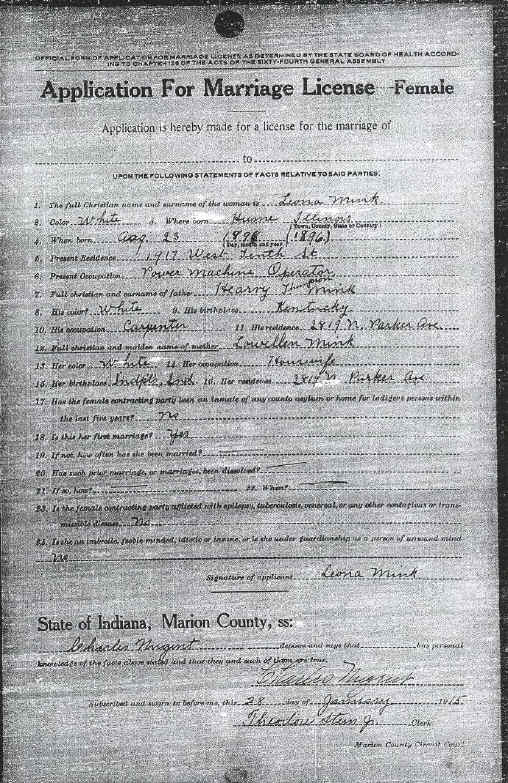 OFFICIAL FORM OF APPLICATION FOR MARRIAGE LICENSE AS DETERMINED BY THE STATE BOARD OF HEALTH ACCORD-
ING TO CHAPTER 126 OF THE ACTS OF THE SIXTY-FOURTH GENERAL ASSEMBLY
Application For Marriage License—Female
Application is hereby made for a license for the marriage of
to
UPON THE FOLLOWING STATEMENTS OF FACTS RELATIVE TO SAID PARTIES:
1. The full Christian name and surname of the woman is Leona Mink
2. Color White 3. Where born Hume Illinois
(Town, County, State or Country)
4. When born Aug. 23 (1896)
(Day, month and year)
5. Present Residence 1917 West Tenth St
6. Present Occupation Power Machine Operator
7. Full christian and surname of father Mink
8. His color? White 9. His birthplace Kentucky
10. His occupation Carpenter 11. His residence 2417 N. Parker Ave
12. Full christian and maiden name of mother Lowellen Mink
13. Her color White 14. Her occupation Housewife
15. Her birthplace Indpls, Ind. 16. Her residence 2417 N Parker Ave
17. Has the female contracting party been an inmate of any county asylum or home for indigent persons within
the last five years? No
18. Is this her first marriage? Yes
19. If not, how often has she been married?
20. Has such prior marriage, or marriages, been dissolved?
21. If so, how? 22. When?
23. Is the female contracting party afflicted with epilepsy, tuberculosis, venereal, or any other contagious or trans-
missible disease No
24. Is she an imbecile, feeble minded, idiotic or insane, or is she under guardianship as a person of unsound mind
No
Signature of applicant Leona Mink
State of Indiana, Marion County, ss:
Charles Nugent deposes and says that has personal
knowledge of the facts above stated and that they and each of them are true.
Charles Nugent
Subscribed and sworn to before me, this 28 day of January 1915
Theodore Stein Jr. Clerk
Marion County Circuit Court